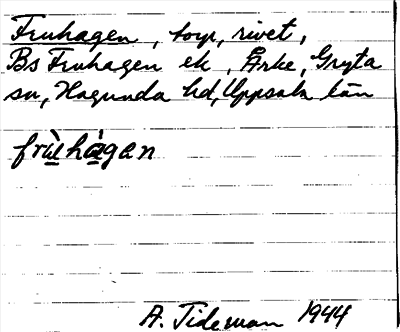 Fruhagen, torp, rivet,
Bs Fruhagen ek, Årke, Gryta
sn, Hagunda hd, Uppsala län
frùhàgan
A. Tideman 1944